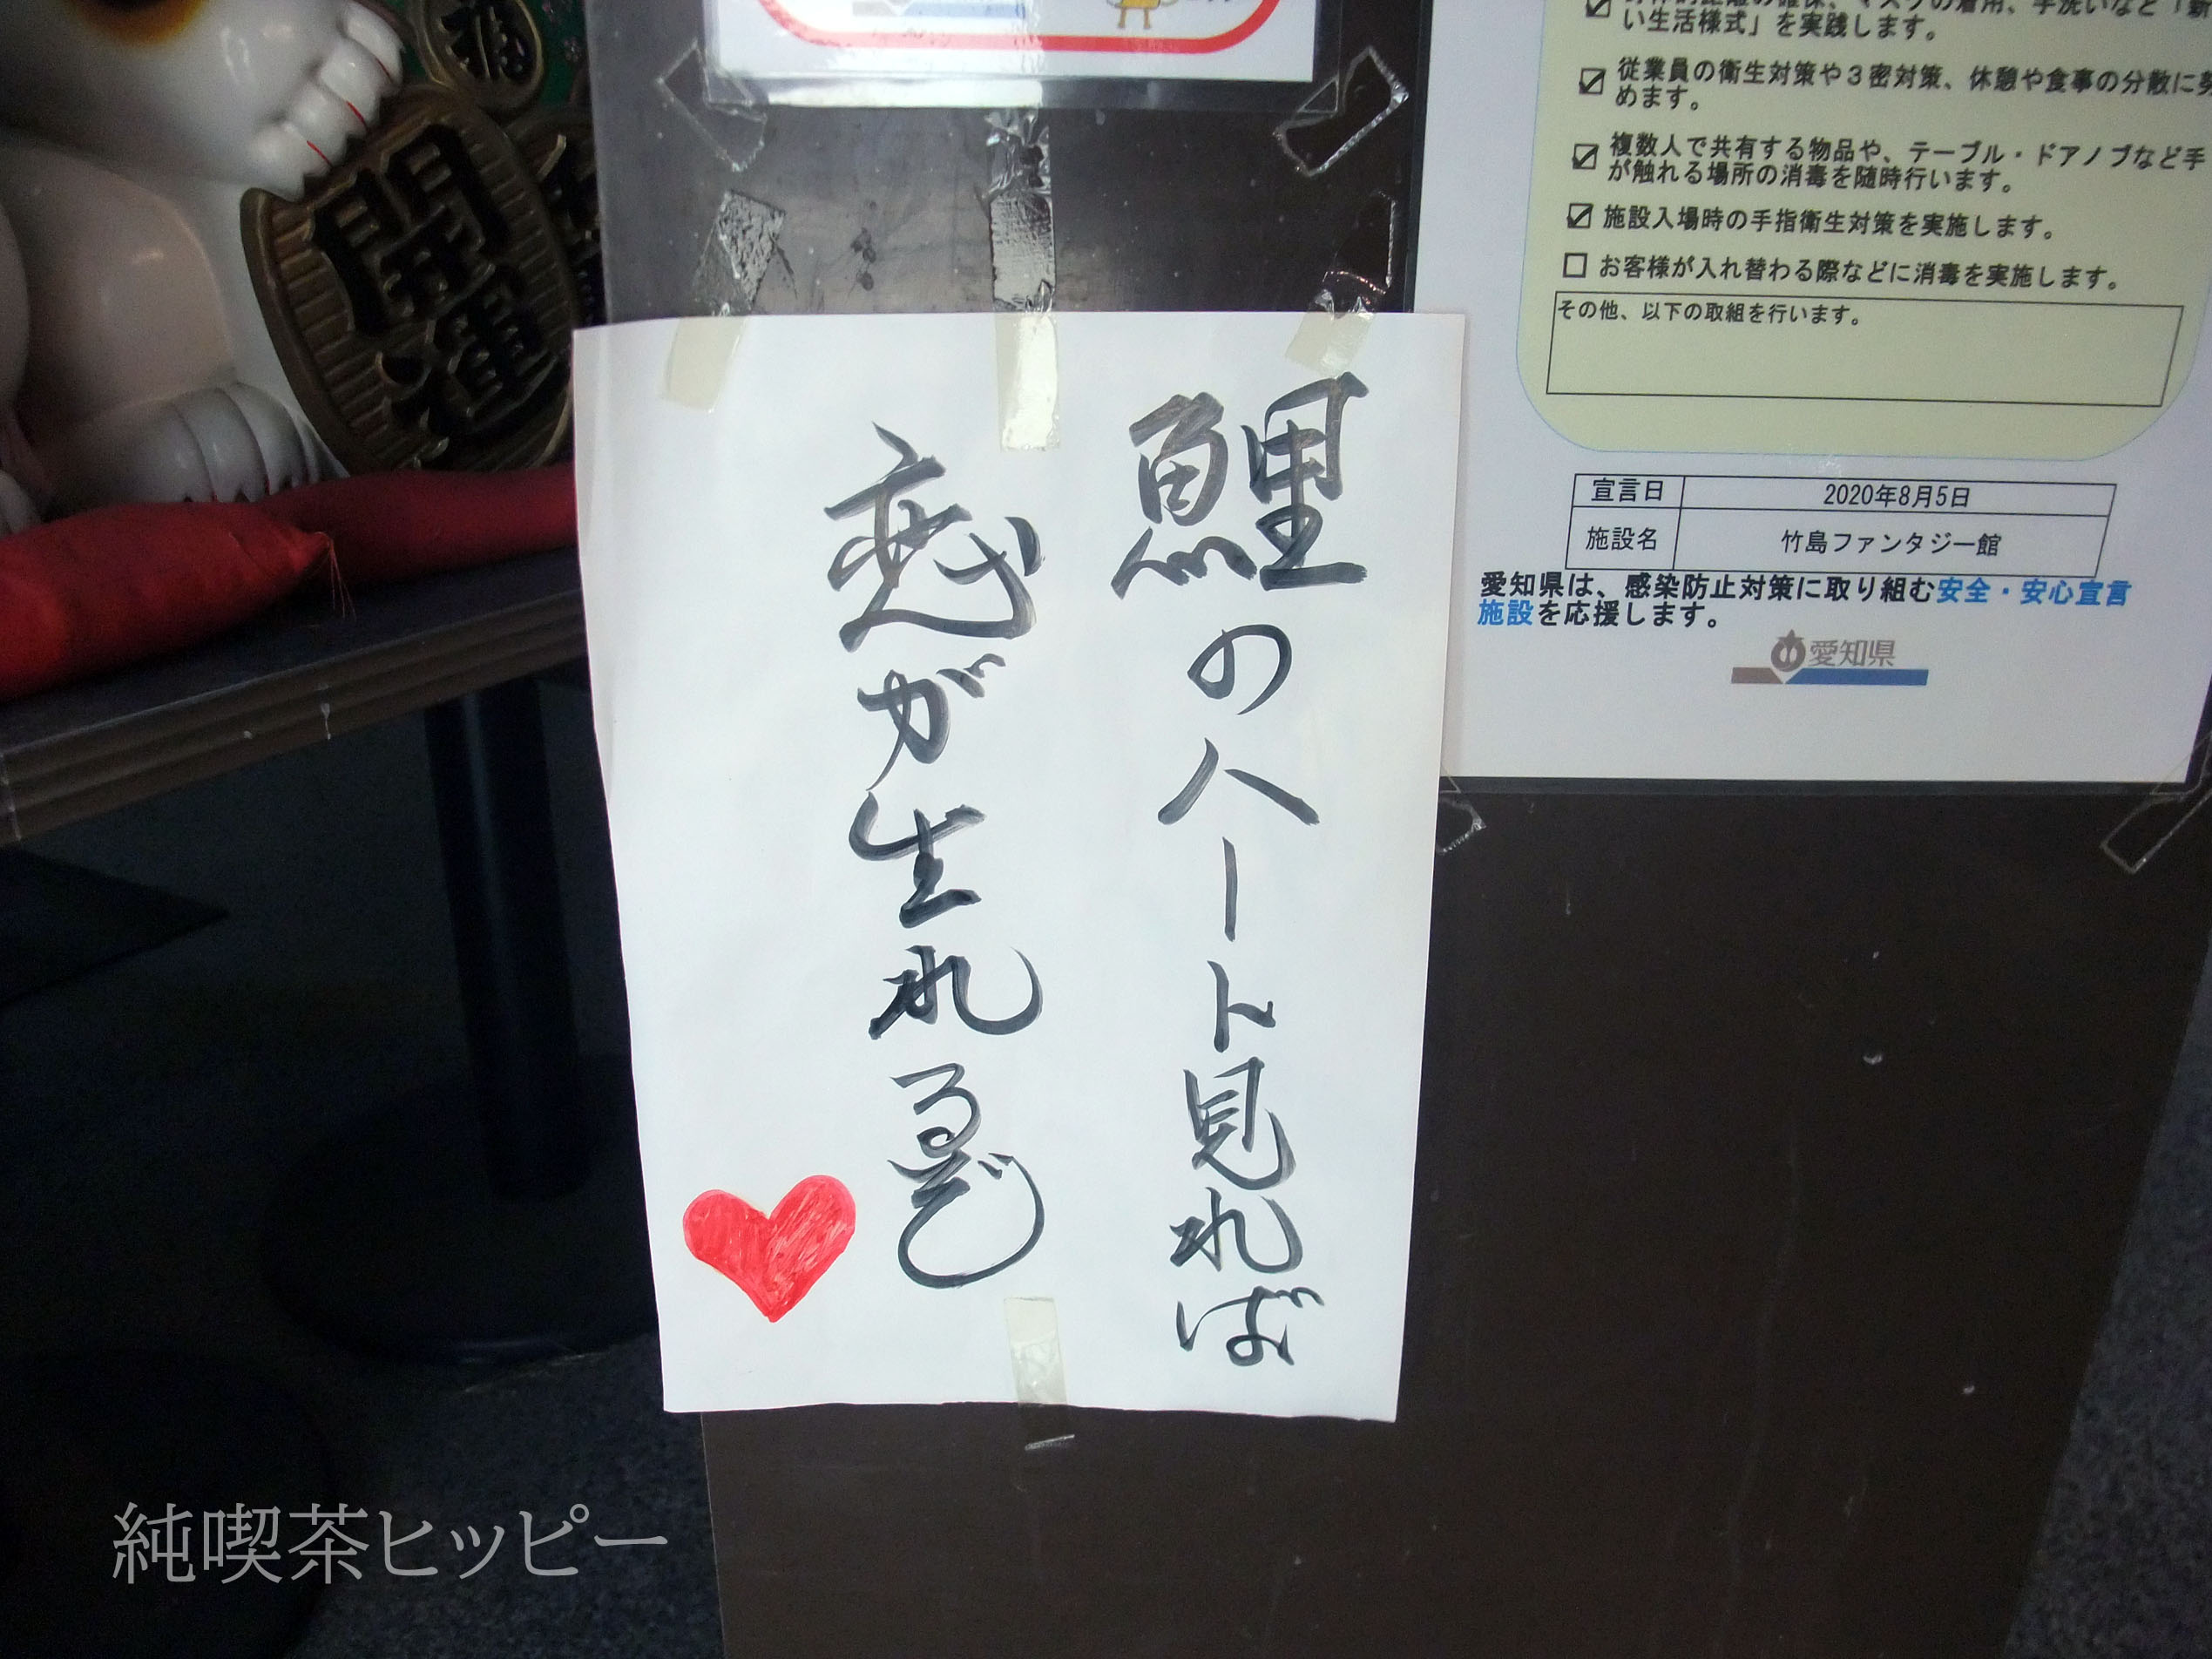 鯉のハート見れば
恋が生れるぞ
開運
い生活様式」を実践します。
従業員の衛生対策や3密対策、休憩や食事の分散に努
めます。
複数人で共有する物品や、テーブル・ドアノブなど手
が触れる場所の消毒を随時行います。
施設入場時の手指衛生対策を実施します。
お客様が入れ替わる際などに消毒を実施します。
その他、以下の取組を行います。
宣言日 2020年8月5日
施設名 竹島ファンタジー館
愛知県は、感染防止対策に取り組む安全・安心宣言
施設を応援します。
愛知県
純喫茶ヒッピー